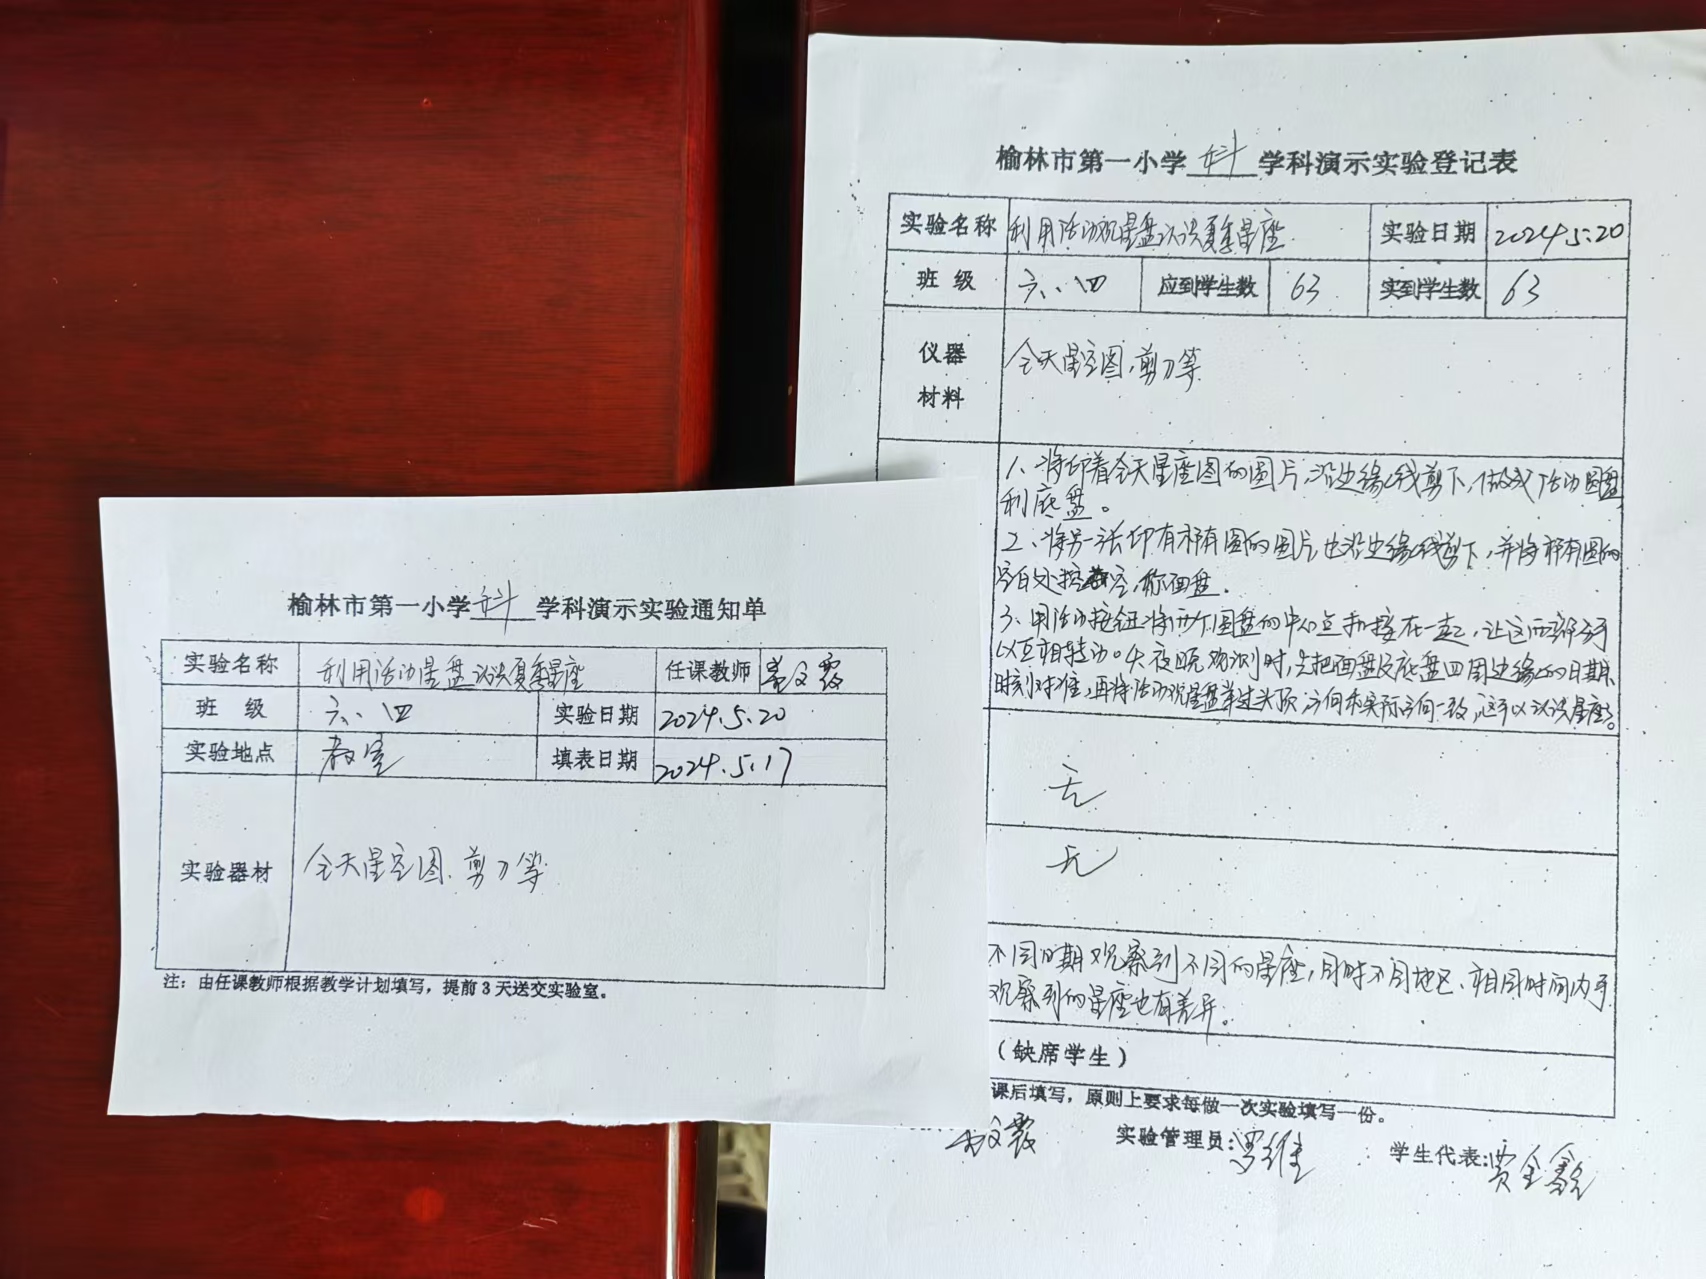 榆林市第一小学 科 学科演示实验通知单
实验名称 利用活动星盘认识夏季星座 任课教师 文霞
班 级 六、四 实验日期 2024.5.20
实验地点 教室 填表日期 2024.5.17
实验器材 全天星空图、剪刀等
注：由任课教师根据教学计划填写，提前3天送交实验室。
榆林市第一小学 科 学科演示实验登记表
实验名称 利用活动观星盘认识夏季星座 实验日期 2024.5.20
班 级 六、四 应到学生数 63 实到学生数 63
仪器
材料 全天星空图，剪刀等
1、将印着全天星座图的图片，沿边缘线剪下，做成活动圆盘
利底盘。
2、将另一张印有椭圆的图片也沿边缘线剪下，并将椭圆的
空白处挖空，称面盘。
3、用活动按钮将两个圆盘的中心点扣接在一起，让这两部分可
以互相转动。人夜晚观测时，先把面盘及底盘四周边缘的日期、
时刻对准，再将活动观星盘举过头顶，方向和实际方向一致，这可以认识星座。
无
无
不同日期观察到不同的星座，同时不同地区、相同时间内
观察到的星座也有差异。
（缺席学生）
课后填写，原则上要求每做一次实验填写一份。
文霞 实验管理员：罗维 学生代表：贾全鑫